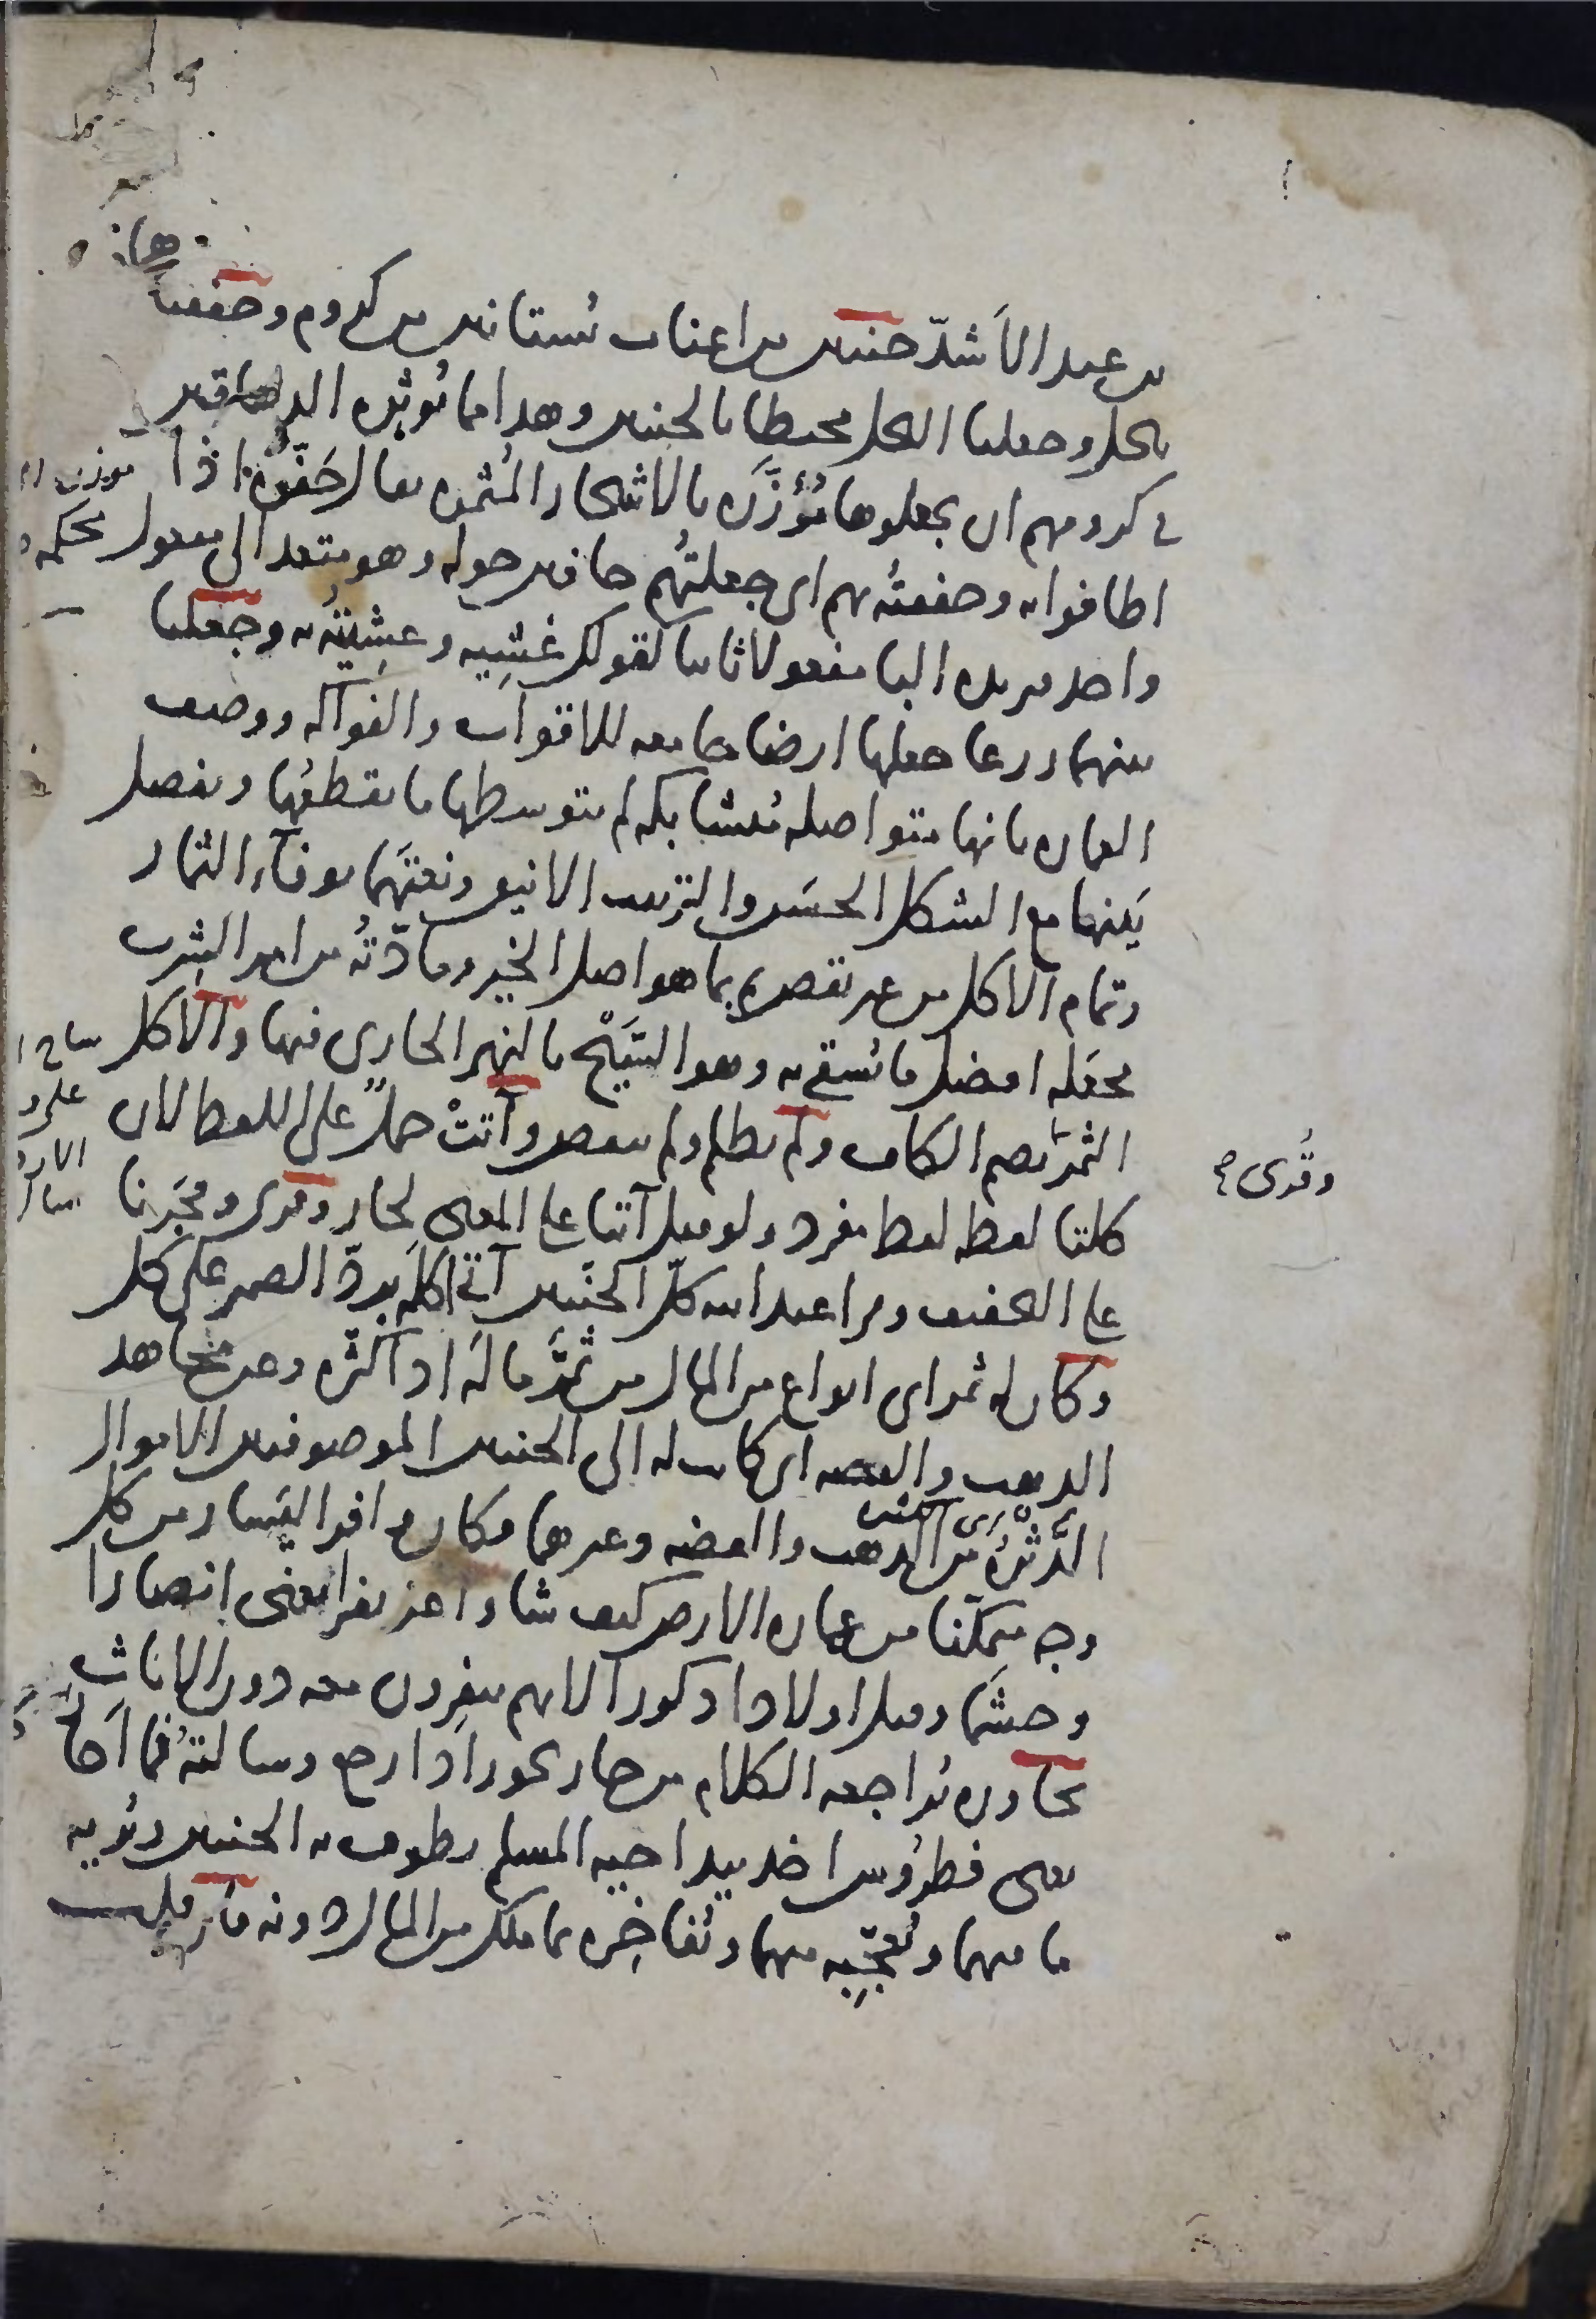 بن عبد الأشدّ جنتين من اعناب بستانين من كروم وحففنا
هما
بنخل وجعلنا النخل محيطا بالجنتين وهذا مما يُؤثره الدهاقين
في كرومهم ان يجعلوها مُؤزَّرة بالاشجار المُثمرة يقال حَفُّوهُ اذا
اطافوا به وحففتُه بهم اى جعلتُهم حافين حوله وهو متعد الى مفعول
واحد فيزيده البا مفعولا ثانيا كقولك غَشِيه وغشيتُه به وجعلنا
بينهما زرعا جعلها ارضا جامعه للاقوات والفواكه ووصف
العماره بانها متواصله مُتشابكه لم يتوسطها ما يقطعُها ويفصل
بَينها مع الشكل الحسَن والترتيب الانيق ونعتَهُما بوفآء الثمار
وتمام الاكل من غير نقص ثم بما هو اصل الخير ومادّتُه من امر الشرب
فجعَله افضل ما يُسقى به وهو السَّيْح بالنهر الجارى فيها والاكل
الثمَر بضم الكاف ولم تظلم ولم تنقص وآتتْ حملاً على اللفظ لان
كلتا لفظه لفظ مفرد ولو قيل آتتا على المعنى لجاز وقرى وفجَرنا
وقُرى
على التخفيف وقرا عبد الله كلّ الجنّتين آتى اكلَه بردّ الضمير على كل
وكان له ثمر اى انواع من المال من ثمَّر مالَه اذا كثّره وعن مجاهد
الذهب والفضه اى كانت له الى الجنتين الموصوفتين الاموال
الدَّثْرةُ من الذهب والفضه وغيرهما وكان وافر اليَسار من كل
وجه متمكّنا من عماره الارض كيف شا واعز نفرا يعنى انصارا
وحشَما وقيل اولادا ذكورا لانهم ينفِرون معه دون الاناث
يحاوره يُراجعه الكلام من حار يحور اذا رجع وسالتُه فما احار
يعنى قطرُوس اخذ بيد اخيه المسلم يطوف به الجنتين ويُريه
ما فيهما ويُعجّبه منهما ويُفاخِره بما ملك من المال دونه فان قلت